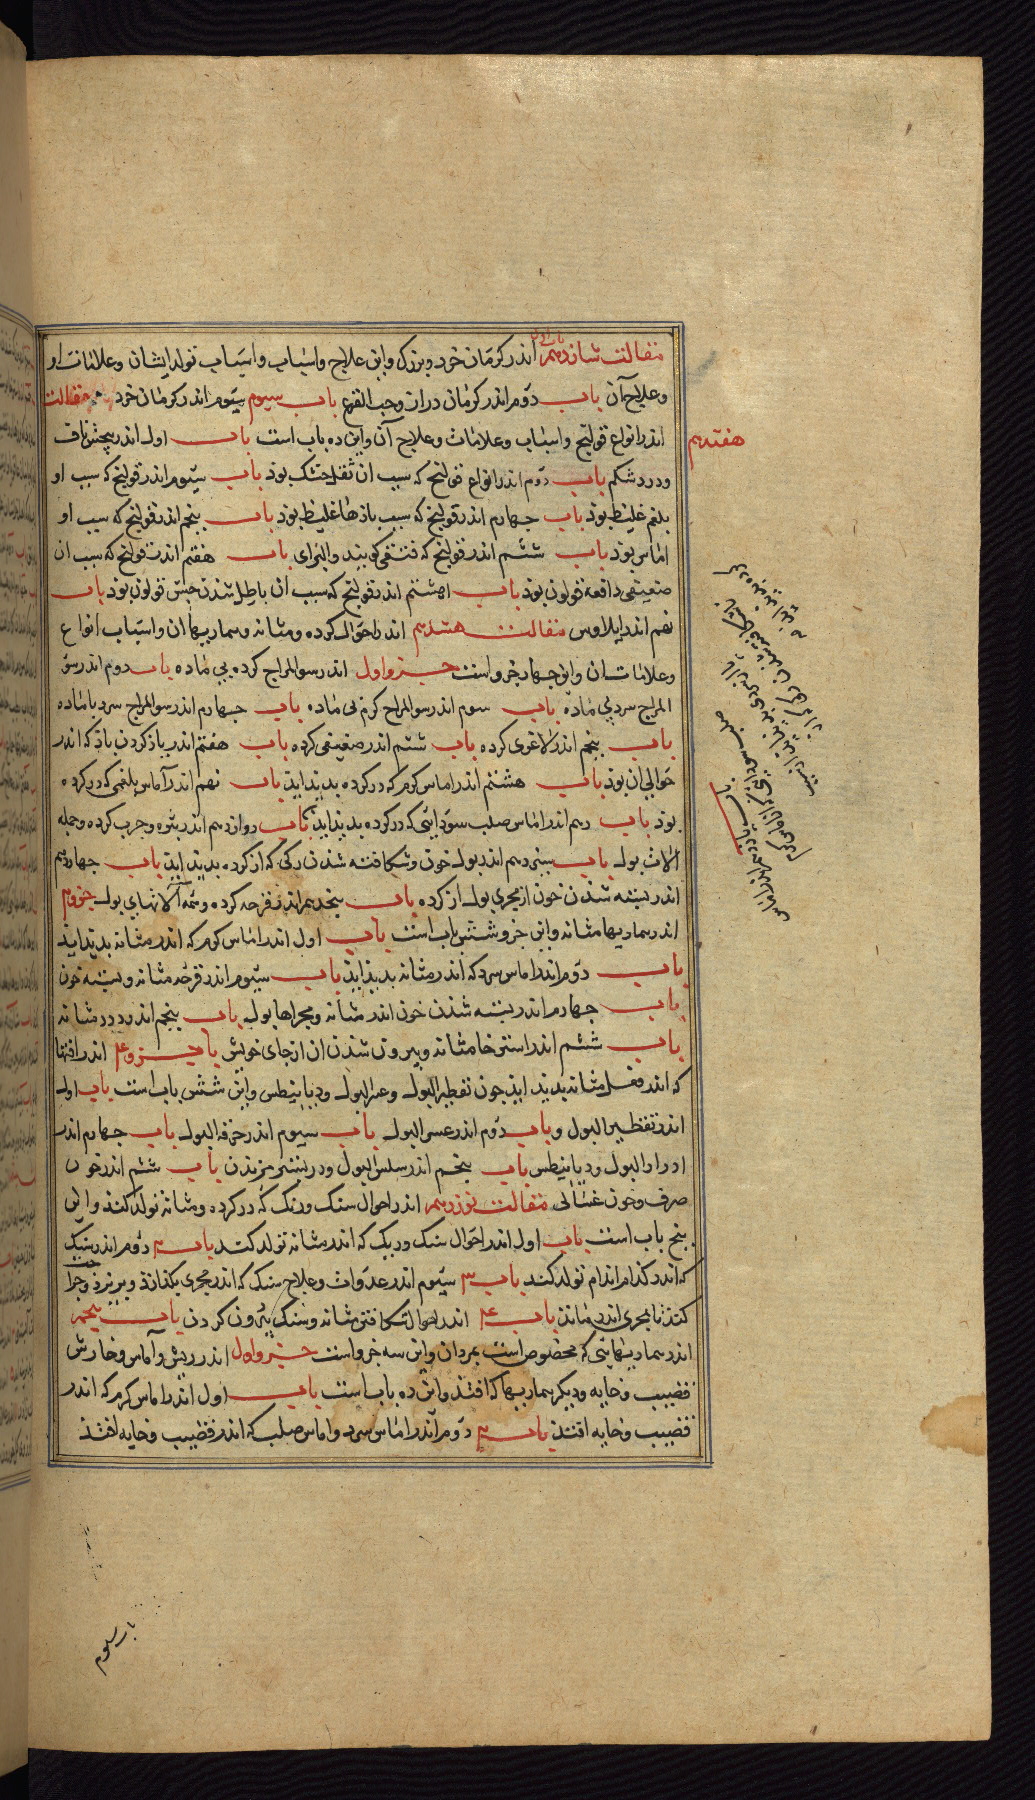 مقالت شانزدهم اندر کرمان خرد و بزرک واین علاج واسباب واسباب تولد ایشان وعلامات او
وعلاج آن باب دوم اندر کرمان دراز وحب القرع باب سیوم سیوم اندر کرمان خرد مقالت
هفتدهم
اندر انواع قولنج واسباب وعلامات وعلاج آن واین ده باب است باب اول اندر پیچش ناف
ودرد شکم باب دوم اندر انواع قولنج که سبب ان ثفل خشک بوذ باب سیوم اندر قولنج که سبب او
بلغم غلیظ بوذ باب جهارم اندر قولنج که سبب باذها غلیظ بوذ باب پنجم اندر قولنج که سبب او
اماس بوذ باب ششم اندر قولنج که فتقی کویند والتوای باب هفتم اندر قولنج که سبب ان
ضعیفی دافعه قولون بوذ باب هشتم اندر قولنج که سبب ان باطل شدن حس قولون بوذ باب
نهم اندر ایلاوس مقالت هشدهم اندر احوال کرده ومثانه وبیماریها ان واسباب انواع
وعلامات ان واین جهار جزو است جزو اول اندر سوالمزاج کرده بی ماده باب دوم اندر سو
المزاج سرد بی ماده باب سوم اندر سوالمزاج کرم بی ماده باب جهارم اندر سوالمزاج سرد با ماده
باب پنجم اندر لاغری کرده باب ششم اندر ضعیفی کرده باب هفتم اندر باذ کردن باذ که اندر
حوالی ان بوذ باب هشتم اندر اماس کرم که در کرده پدید اید باب نهم اندر آماس بلغمی که در کرده
بوذ باب دهم اندر اماس صلب سودایی که در کرده پدید اید باب دوازدهم اندر بثره وجرب کرده وجمله
الات بول باب سیزدهم اندر بول خون وشکافته شدن رکی که از کرده پدید اید باب جهاردهم
اندر بسته شدن خون از مجری بول از کرده باب پنجدهم اندر قرحه کرده وهمه آلاتهای بول جزو دوم
اندر بیماریها مثانه واین جزو شش باب است باب اول اندر اماس کرم که اندر مثانه پدید اید
باب دوم اندر اماس سرد که اندر مثانه پدید اید باب سیوم اندر قرحه مثانه وبسته خون
باب جهارم اندر بسته شدن خون اندر مثانه ومجراها بول باب پنجم اندر درد مثانه
باب ششم اندر استرخا مثانه وبیرون شدن ان از جای خویش باب جزو ۳ اندر افتها
که اندر فعل مثانه پدید اید جون تقطیر البول وعسر البول ودیابیطس واین شش باب است باب اول
اندر تقطیر البول و باب دوم اندر عسر البول باب سیوم اندر حرقه البول باب جهارم اندر
ادرار البول ودیابیطس باب پنجم اندر سلس البول ودر بستر میزیدن باب ششم اندر خون
صرف وخون غسالی مقالت نوزدهم اندر احوال سنک وریک که در کرده ومثانه تولد کند واین
پنج باب است باب اول اندر احوال سنک وریک که اندر مثانه تولد کند باب ۲ دوم اندر سنک
که اندر کدام اندام تولد کند باب ۳ سیوم اندر علامات وعلاج سنک که اندر مجری بکذارد وبریزد
کند تا بمجری اندر نماند باب ۴ اندر احوال شکافتن مثانه وسنک بیرون کردن باب پنجم
اندر بیماریهایی که مخصوص است بمردان واین سه جزو است جزو اول اندر ریش وآماس وخارش
قضیب وخایه ودیکر بیماریها که افتد واین ده باب است باب اول اندر اماس کرم که اندر
قضیب وخایه افتد باب ۲ دوم اندر اماس سرد واماس صلب که اندر قضیب وخایه افتد
باب یازدهم اندر اماس